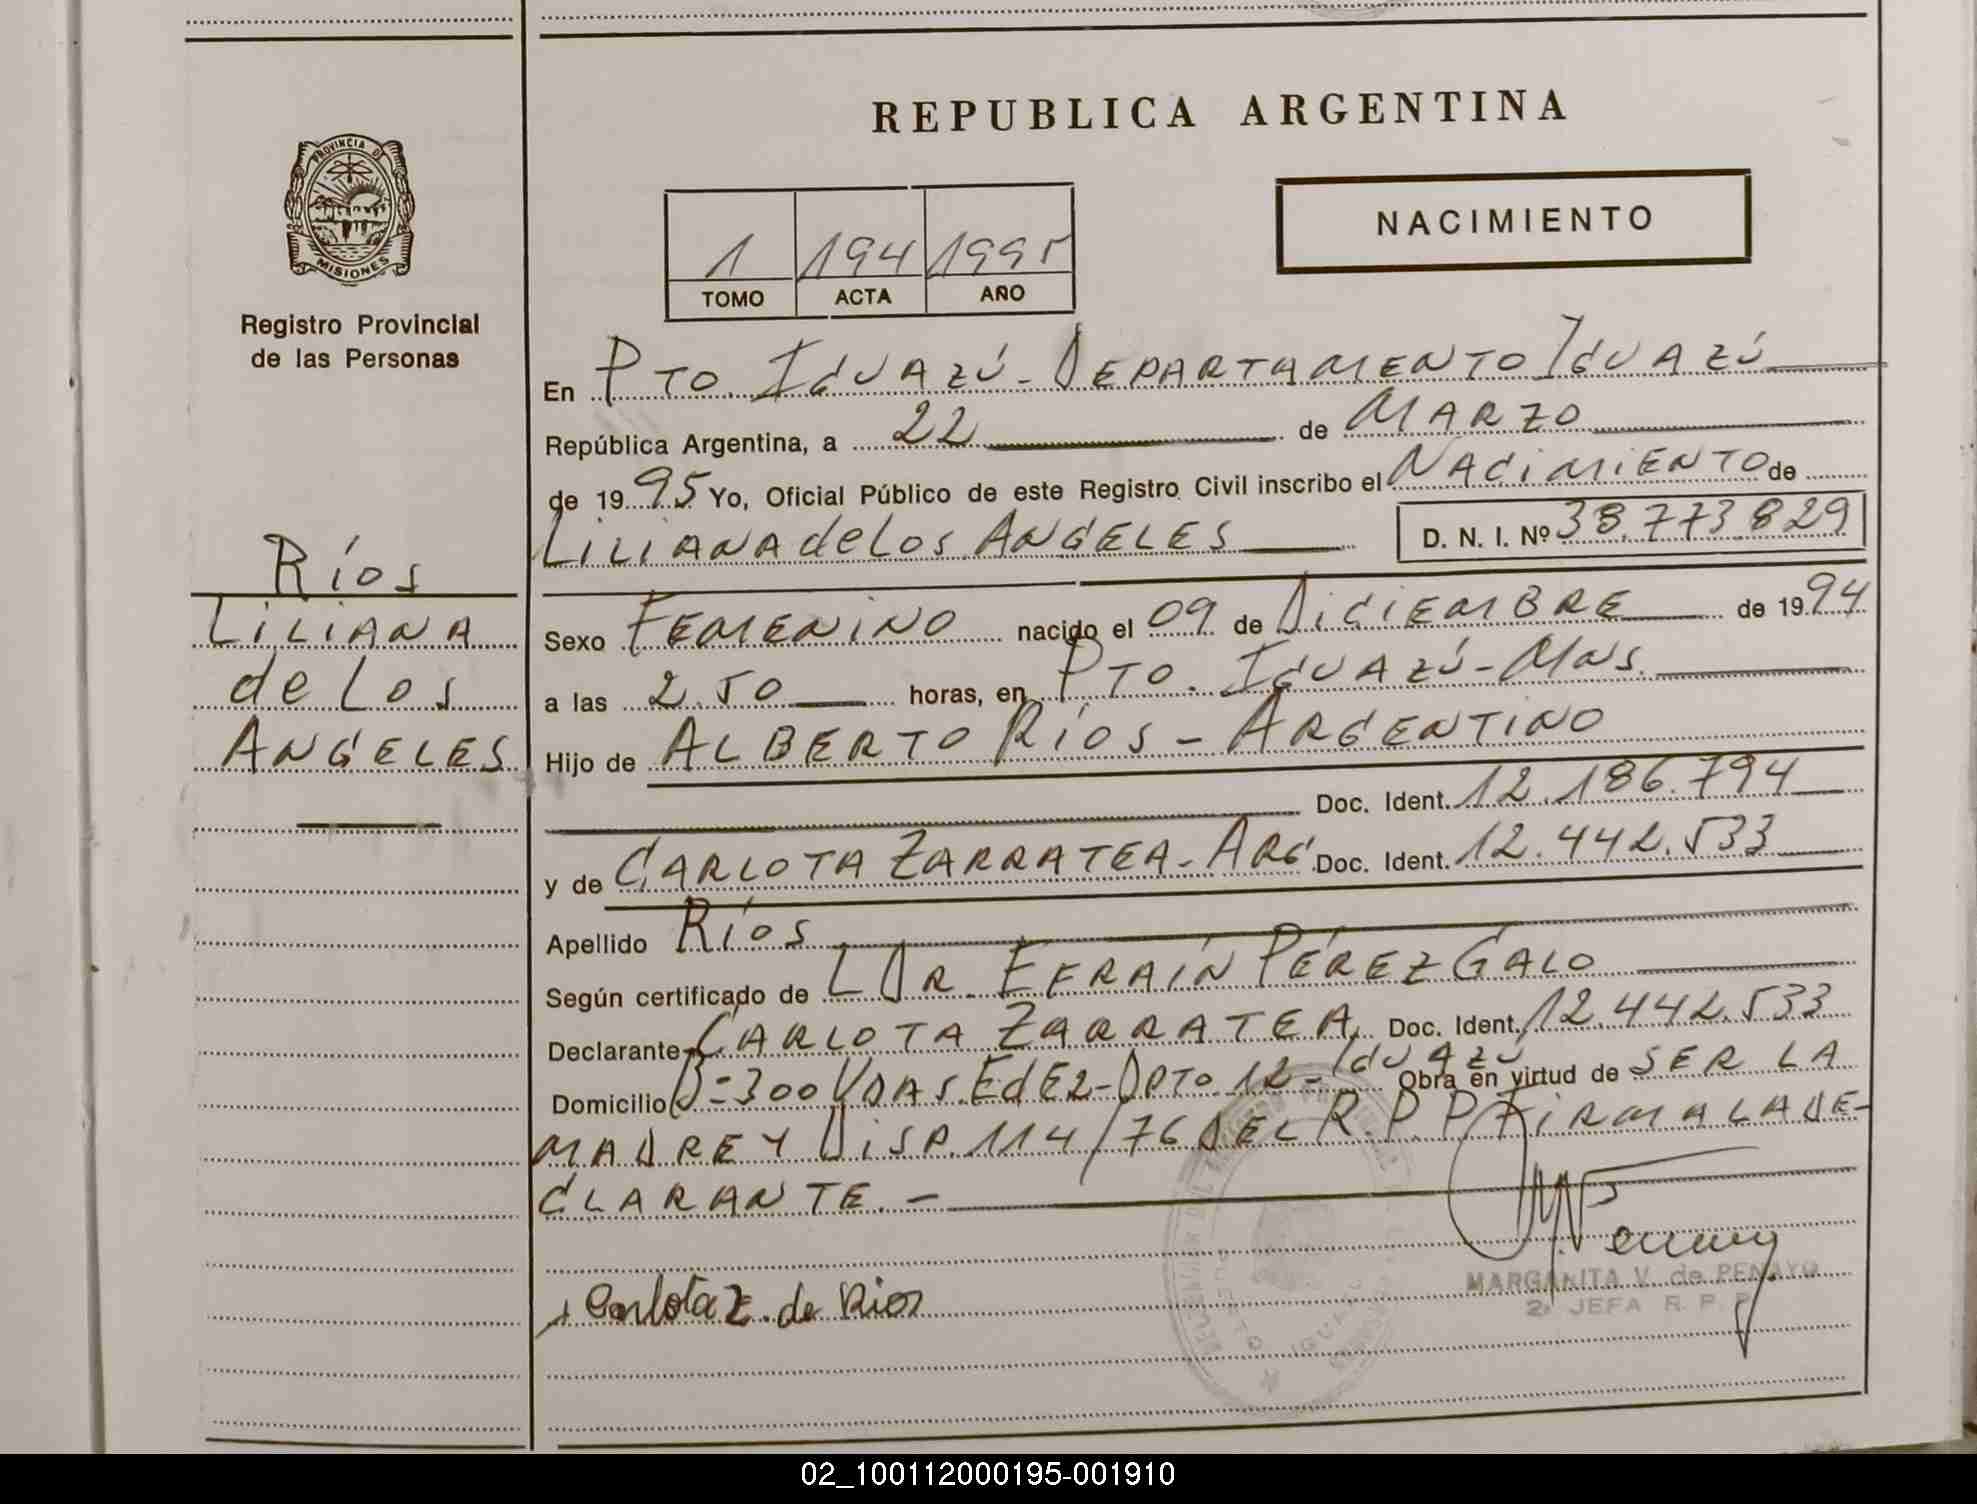 PROVINCIA DE
MISIONES
Registro Provincial
de las Personas
Ríos
LILIANA
de Los
ANGELES
REPUBLICA ARGENTINA
1 194 1995
TOMO ACTA AÑO
NACIMIENTO
En PTO. IGUAZÚ - DEPARTAMENTO IGUAZÚ
República Argentina, a 22 de MARZO
de 1995 Yo, Oficial Público de este Registro Civil inscribo el NACIMIENTO de
LILIANA de Los ANGELES D. N. I. Nº 38.773.829
Sexo FEMENINO nacido el 09 de DICIEMBRE de 1994
a las 2.50 horas, en PTO. IGUAZÚ - Mns.
Hijo de ALBERTO RÍOS - ARGENTINO
Doc. Ident. 12.186.794
y de CARLOTA ZARRATEA - ARG. Doc. Ident. 12.442.533
Apellido Ríos
Según certificado de L DR. EFRAÍN PÉREZ GALO
Declarante CARLOTA ZARRATEA Doc. Ident. 12.442.533
Domicilio B= 300 VDAS. Ed E2 - DPTO. 12 - IGUAZÚ Obra en virtud de SER LA
MADRE Y DISP. 114/76 DEL R.P.P FIRMA LA DE-
CLARANTE. -
Carlota Z. de Rios
MARGARITA V. de PENAYO
2º JEFA R. P. P.
02_100112000195-001910